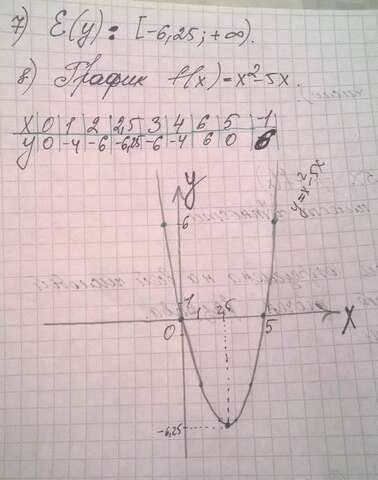 7) E(y): [-6,25; +∞).
8) График f(x) = x²-5x.
x | 0 | 1 | 2 | 2,5 | 3 | 4 | 6 | 5 | -1
y | 0 | -4 | -6 | -6,25 | -6 | -4 | 6 | 0 | 6
y
y=x²-5x
6
1
0 1 2,5 5 X
-6,25